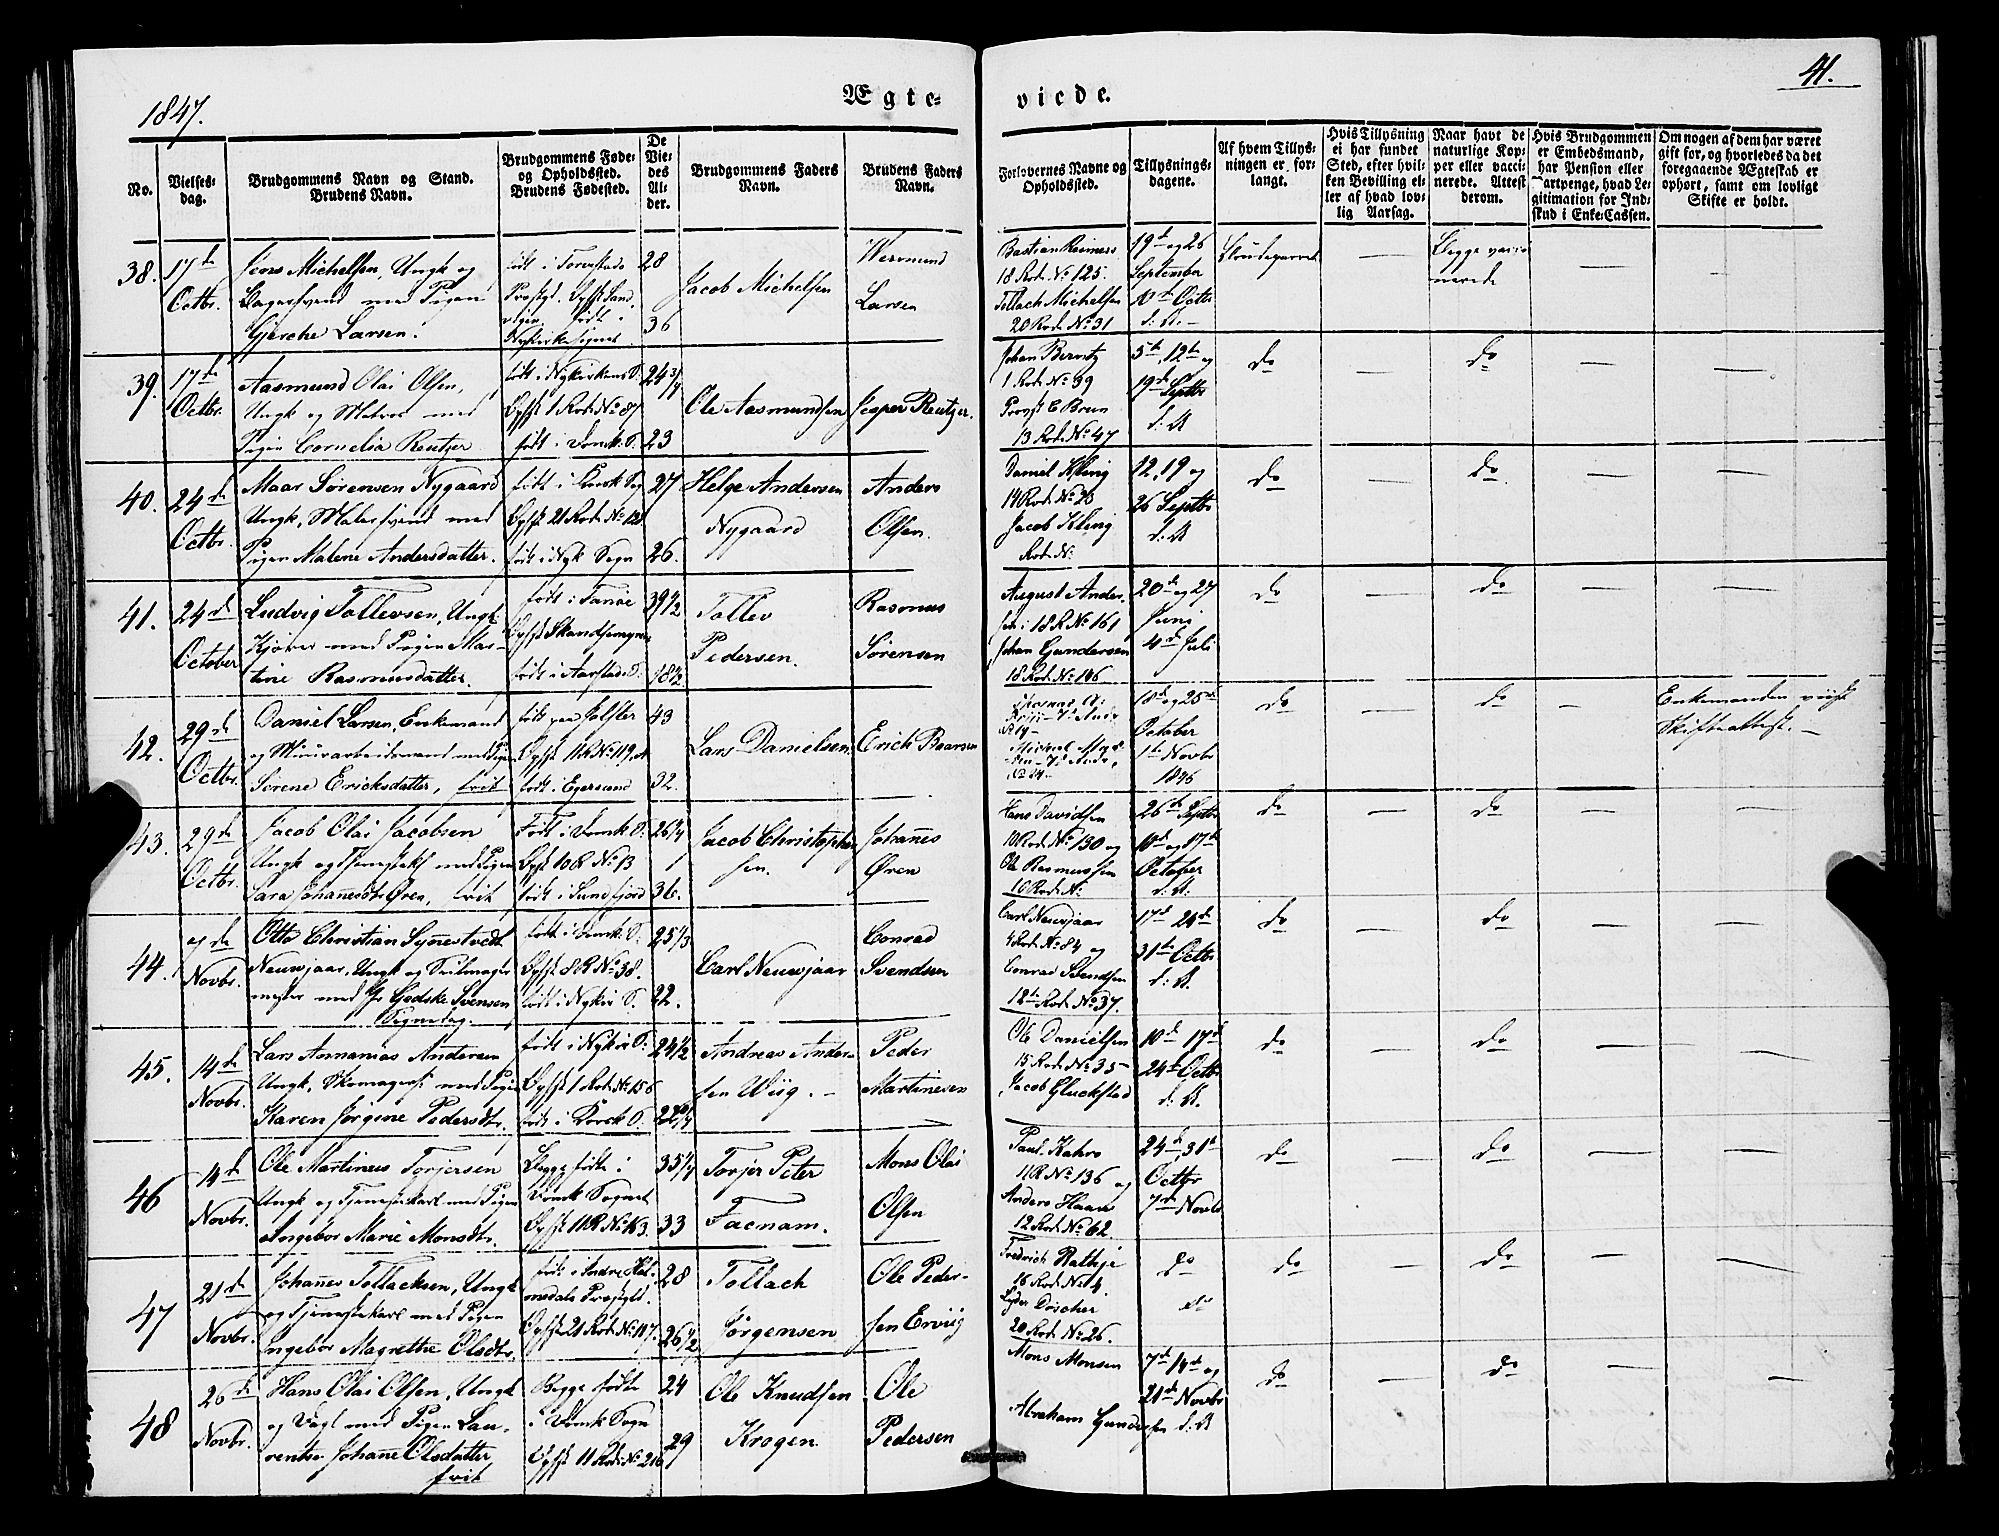 1847.
Ægte-
viede.
41.
No.
Vielses-
dag.
Brudgommens Navn og Stand.
Brudens Navn.
Brudgommens Føde-
og Opholdssted.
Brudens Fødested.
De
Vie-
des
Al-
der.
Brudgommens Faders
Navn.
Brudens Faders
Navn.
Forlovernes Navne og
Opholdssted.
Tillysnings-
dagene.
Af hvem Tillys-
ningen er for-
langt.
Hvis Tillysning
ei har fundet
Sted, efter hvil-
ken Bevilling el-
ler af hvad lov-
lig Aarsag.
Naar havt de
naturlige Kop-
per eller vacci-
nerede. Attest
derom.
Hvis Brudgommen
er Embedsmand,
har Pension eller
Vartpenge, hvad Le-
gitimation for Ind-
skud i Enke-Cassen.
Om nogen af dem har været
gift før, og hvorledes da det
foregaaende Ægteskab er
ophørt, samt om lovligt
Skifte er holdt.
38. 17de
Octbr.
Jens Michelsen, Ungk og
Bagersvend med Pigen
Gjerche Larsen.
28
36
Jacob Michelsen
Wermund
Larsen
Bastian Reimers
18 Rod. No 125.
Tollach Michelsen
20 Rod No 31
19de og 26
September
10de Octbr
d: A.
Brudeparret
Begge vacci
nerede
39. 17de
Octbr.
Aasmund Olai Olsen,
Ungk og Matros med
Pigen Cornelia Reutzer
født i Nykirkens S.
Opht 1 Rod No 87
født i Domk: S.
24 3/4
23
Ole Aasmundsen
Jesper Reutzer.
Johan Berntz
1 Rod No 39
Provst C Brun
13 Rod No 47
5te, 12te og
19de Septbr
d: A
do
do
40. 24de
Octbr.
Maar Sørensen Nygaard
Ungk, Malersvend med
Pigen Malene Andersdatter.
født i Domk Sog
Opht 21 Rod No 128
født i Nyk Sogn
27
26.
Helge Andersen
Nygaard
Anders
Olsen.
Daniel Kling
14 Rod No 28
Jacob Kling
Rod No
12, 19 og
26 Septbr
d: A
do
do
41. 24de
October
Ludvig Tollevsen, Ungk
Kjører med Pigen Mar-
tine Rasmusdatter.
født i Fanøe
født i Aarstads S.
39 1/2
18 1/2
Tollev
Pedersen.
Rasmus
Sørensen
August Ander-
sen i 18 R No 161
Johan Gundersen
18 Rod No 106
20de og 27
Juni
4de Juli
do
do
42. 29de
Octbr.
Daniel Larsen, Enkemand
og Minerarbeidsmand med Pigen
Sørene Ericksdatter, frit
født paa Jølster
Opht 11 R No 119, a
født i Egersund
43
32.
Lars Danielsen,
Erich Baarsen
18de og 25de
October
1te Novbr
1846
do
do
Enkemanden viist
Skifteattest.
43. 29de
Octbr.
Jacob Olai Jacobsen
Ungk og Tjenestekf med Pigen
Sara Johannesdtr Øren, frit
Født i Domk S.
Opht 10 R No 13
født i Sundfjord
26 1/4
36.
Jacob Christophe
sen.
Johannes
Øren
Hans Davidsen
10 Rod No 130 og
Ole Rasmussen
10 Rod No
26de Septbr
10de og 17de
October
d: A:
do
do
44. 7de
Novbr.
Otto Christian Synnestvedt
Neuwjaar, Ungk og Seilmager
mester med Jfr Godske Svensen
Signedag.
født i Domk: S.
Opht 8 R No 38.
født i Nyki S.
25 1/3
22.
Carl Neuwjaar
Conrad
Svendsen
Carl Neuwjaar
4 Rod No 84 og
Conrad Svendsen
12te Rod No 37.
17de 24de
31te Octbr
d: A.
do
do
45. 14de
Novbr.
Lars Annanias Andersen
Ungk, Skomagersv med Pigen
Karen Jørgine Pedersdtr.
født i Nyki S.
Opht 1 Rod No 156
født i Korsk S.
24 1/2
22 3/4
Andreas Ander-
sen Wiig.
Peder
Martinesen
Ole Danielsen
15 Rod No 35
Jacob Gluckstad
10de 17de
24de Octbr
d: A.
do
do
46 14de
Novbr.
Ole Martinus Torjersen
Ungk og Tjenestekarl med Pigen
Angebor Marie Monsdtr.
Begge fødte i
Domk Sognet
Opht 11 R No 43.
35 1/4
33
Torjer Peter
Facnam.
Mons Olai
Olsen
Paul Kahrs
11 R No 136 og
Anders Haan
12 Rod No 62.
24de, 31te
Octbr
7de Novbr
do
do
47 21de
Novbr.
Johannes Tollacksen, Ungk
og Tjenestekarl med Pigen
Ingebor Magrethe Olsdtr.
født i Indre Hol-
medals Præstgld.
Opht 21 Rod No 117.
28
26 1/2
Tollach
Jørgensen
Ole Peder-
sen Erviig
Fredrich Rathje
16 Rod No 4.
Lyder Döscher
20 Rod No 26.
do
do
do
do
48 26de
Novbr.
Hans Olai Olsen, Ungk
og Vægt med Pigen Lau-
rentse Johanne Olsdatter
frit
Begge fødte
i Domk Sogn
Opht 11 Rod No 216
24
29
Ole Knudsen
Krogen
Ole
Pedersen
Mons Monsen
Abraham Gundersen
7de 14de og
21de Novbr
d: A
do
do